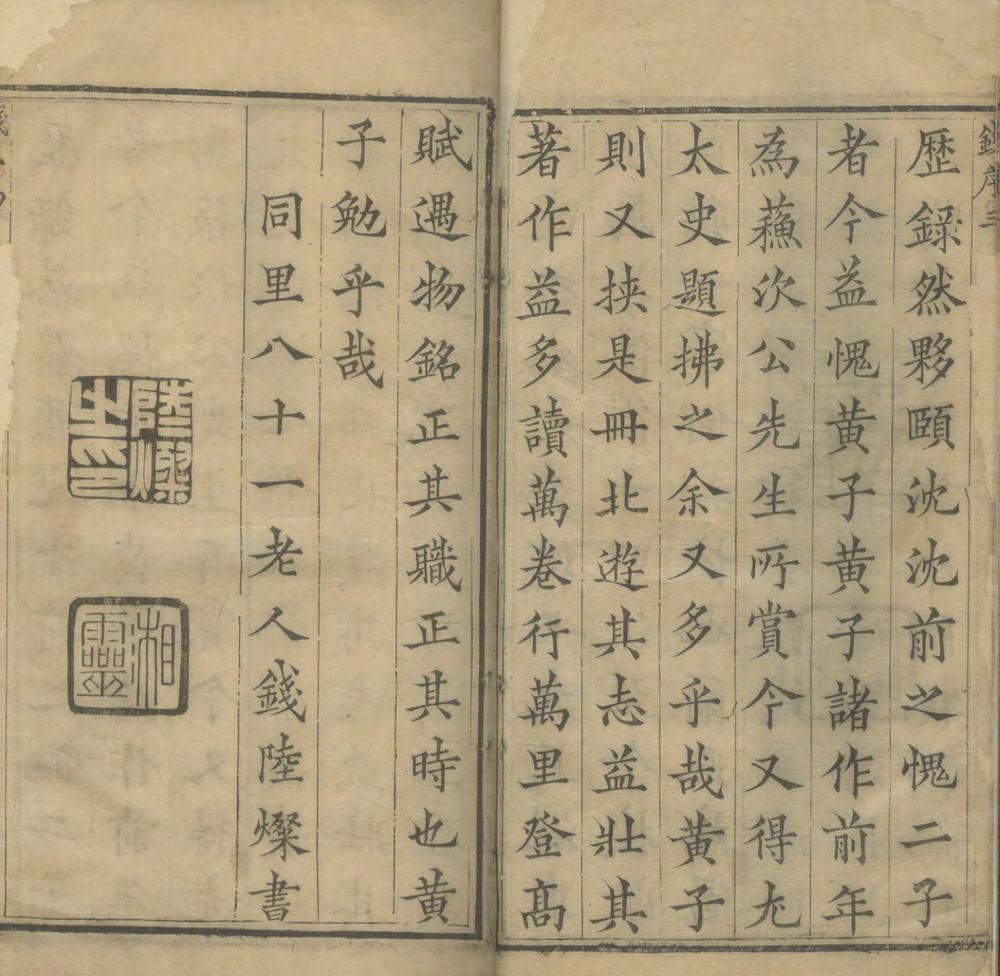 歷錄然夥頤沈沈前之愧二子
者今益愧黃子黃子諸作前年
為蘓次公先生所賞今又得尤
太史題拂之余又多乎哉黃子
則又挟是冊北遊其志益壯其
著作益多讀萬卷行萬里登高
賦遇物銘正其職正其時也黃
子勉乎哉
同里八十一老人錢陸燦書
陸燦之印
湘靈